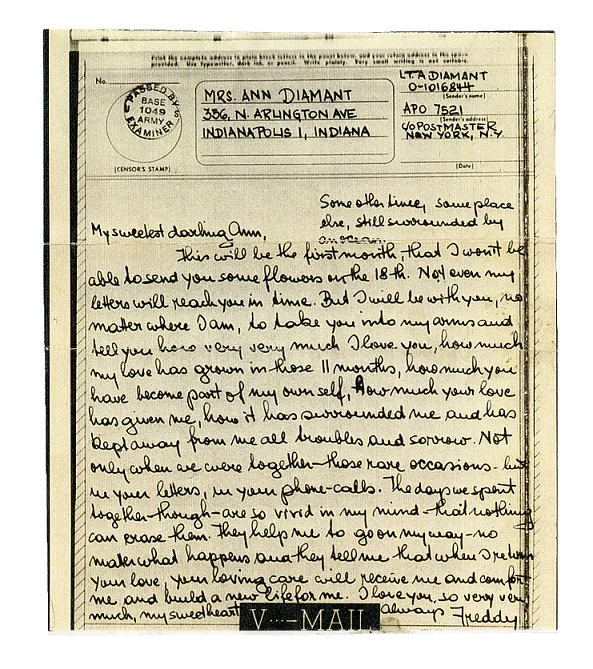 Print the complete address in plain block letters in the panel below, and your return address in the space
provided. Use typewriter, dark ink, or pencil. Write plainly. Very small writing is not suitable.
No.
PASSED BY
BASE
1049
ARMY
EXAMINER
(CENSOR'S STAMP)
MRS. ANN DIAMANT
336, N. ARLINGTON AVE
INDIANAPOLIS 1, INDIANA
LT. A DIAMANT
O-1016844
(Sender's name)
APO 7521
(Sender's address)
c/o POSTMASTER
NEW YORK, N.Y.
(Date)
Some other time, some place
else, still surrounded by
an ocean
My sweetest darling Ann,
This will be the first month, that I won't be
able to send you some flowers on the 18th. Not even my
letters will reach you in time. But I will be with you, no
matter where I am, to take you into my arms and
tell you how very very much I love you, how much
my love has grown in those 11 months, how much you
have become part of my own self, how much your love
has given me, how it has surrounded me and has
kept away from me all troubles and sorrow. Not
only when we were together—those rare occasions - but
in your letters, in your phone-calls. The days we spent
together—though—are so vivid in my mind—that nothing
can erase them. They help me to go on my way—no
matter what happens and they tell me that when I return
your love, your loving care will receive me and comfort
me and build a new life for me. I love you, so very very
much, my sweetheart
Always Freddy
V···-MAIL